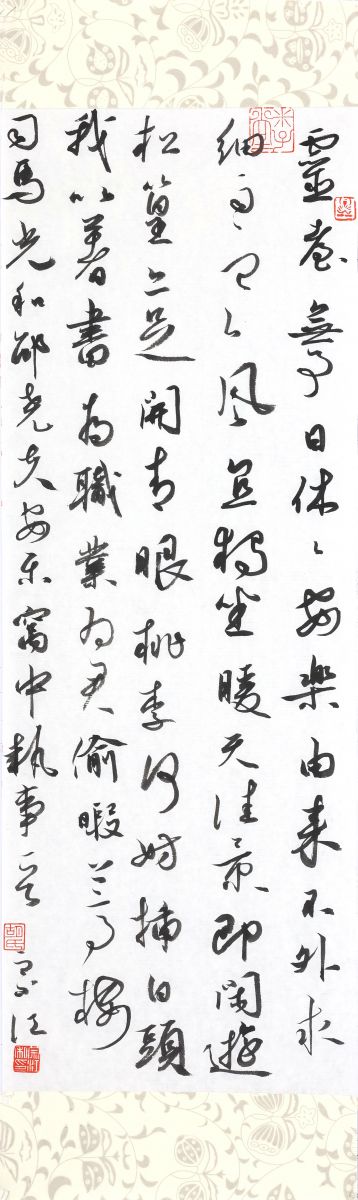 靈臺無事日休〻安樂由來不外求
細雨寒風宜獨坐暖天佳景即閑遊
松篁亦足開青眼桃李何妨插白頭
我以著書為職業為君偷暇登高樓
司馬光和邵堯夫安樂窩中執事吟